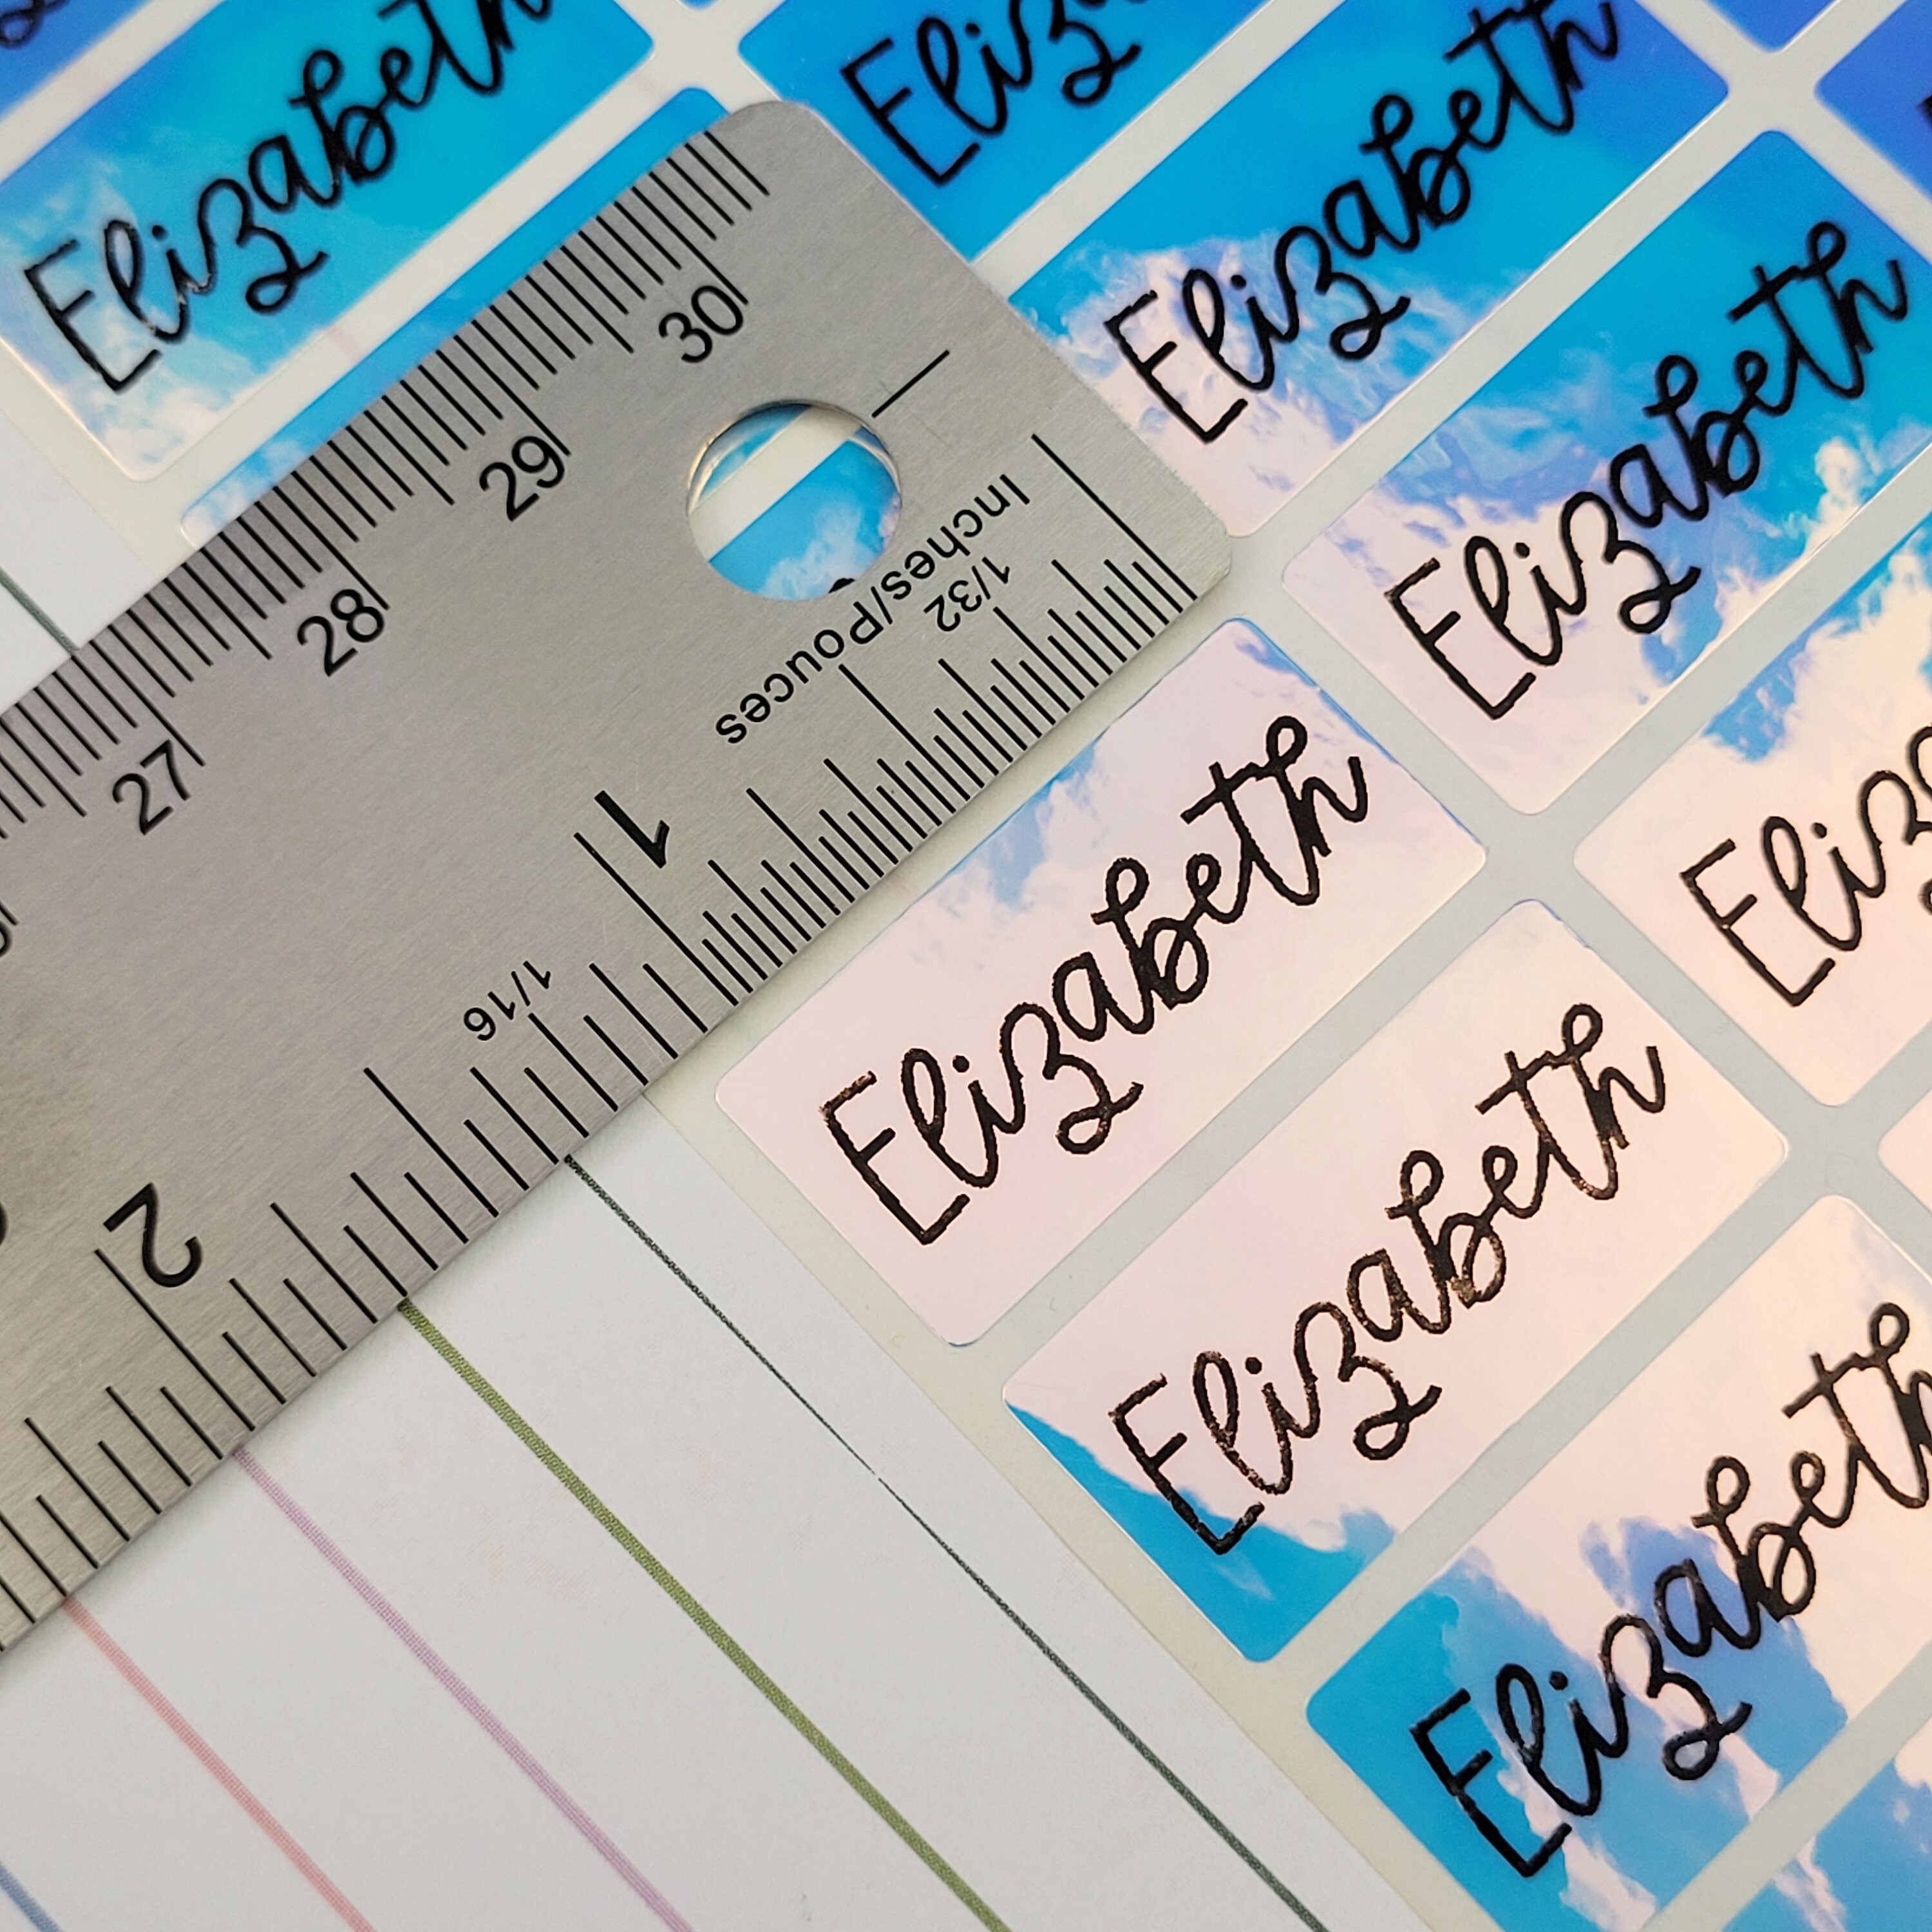 Elizabeth
Eliza
Elizabeth
Elizabeth
Eliz
Elizabeth
Elizabeth
Elizabeth
30
29
28
27
Inches/Pouces
1/32
1
1/16
2